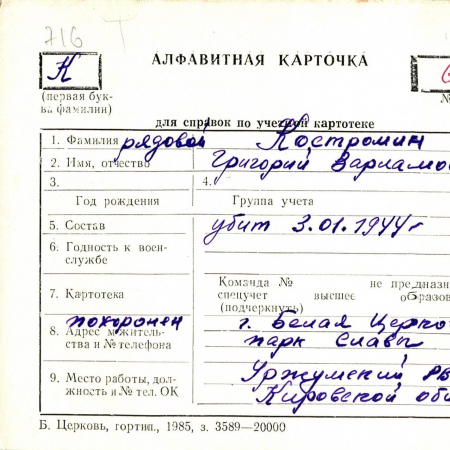 716
К
АЛФАВИТНАЯ КАРТОЧКА
(первая бук-
ва фамилии)
№
для справок по учетной картотеке
1. Фамилия рядовой Костромин
2. Имя, отчество Григорий Варламо
3.
4.
Год рождения
Группа учета
5. Состав убит 3.01.1944 г
6. Годность к воен-
службе
7. Картотека
Команда № не предназн
спецучет высшее образов
(подчеркнуть)
похоронен г. Белая Церко
8. Адрес м жительс-
тва и № телефона
парк Славы
9. Место работы, дол-
жность и № тел. ОК
Уржумский РВ
Кировской об
Б. Церковь, гортип., 1985, з. 3589—20000